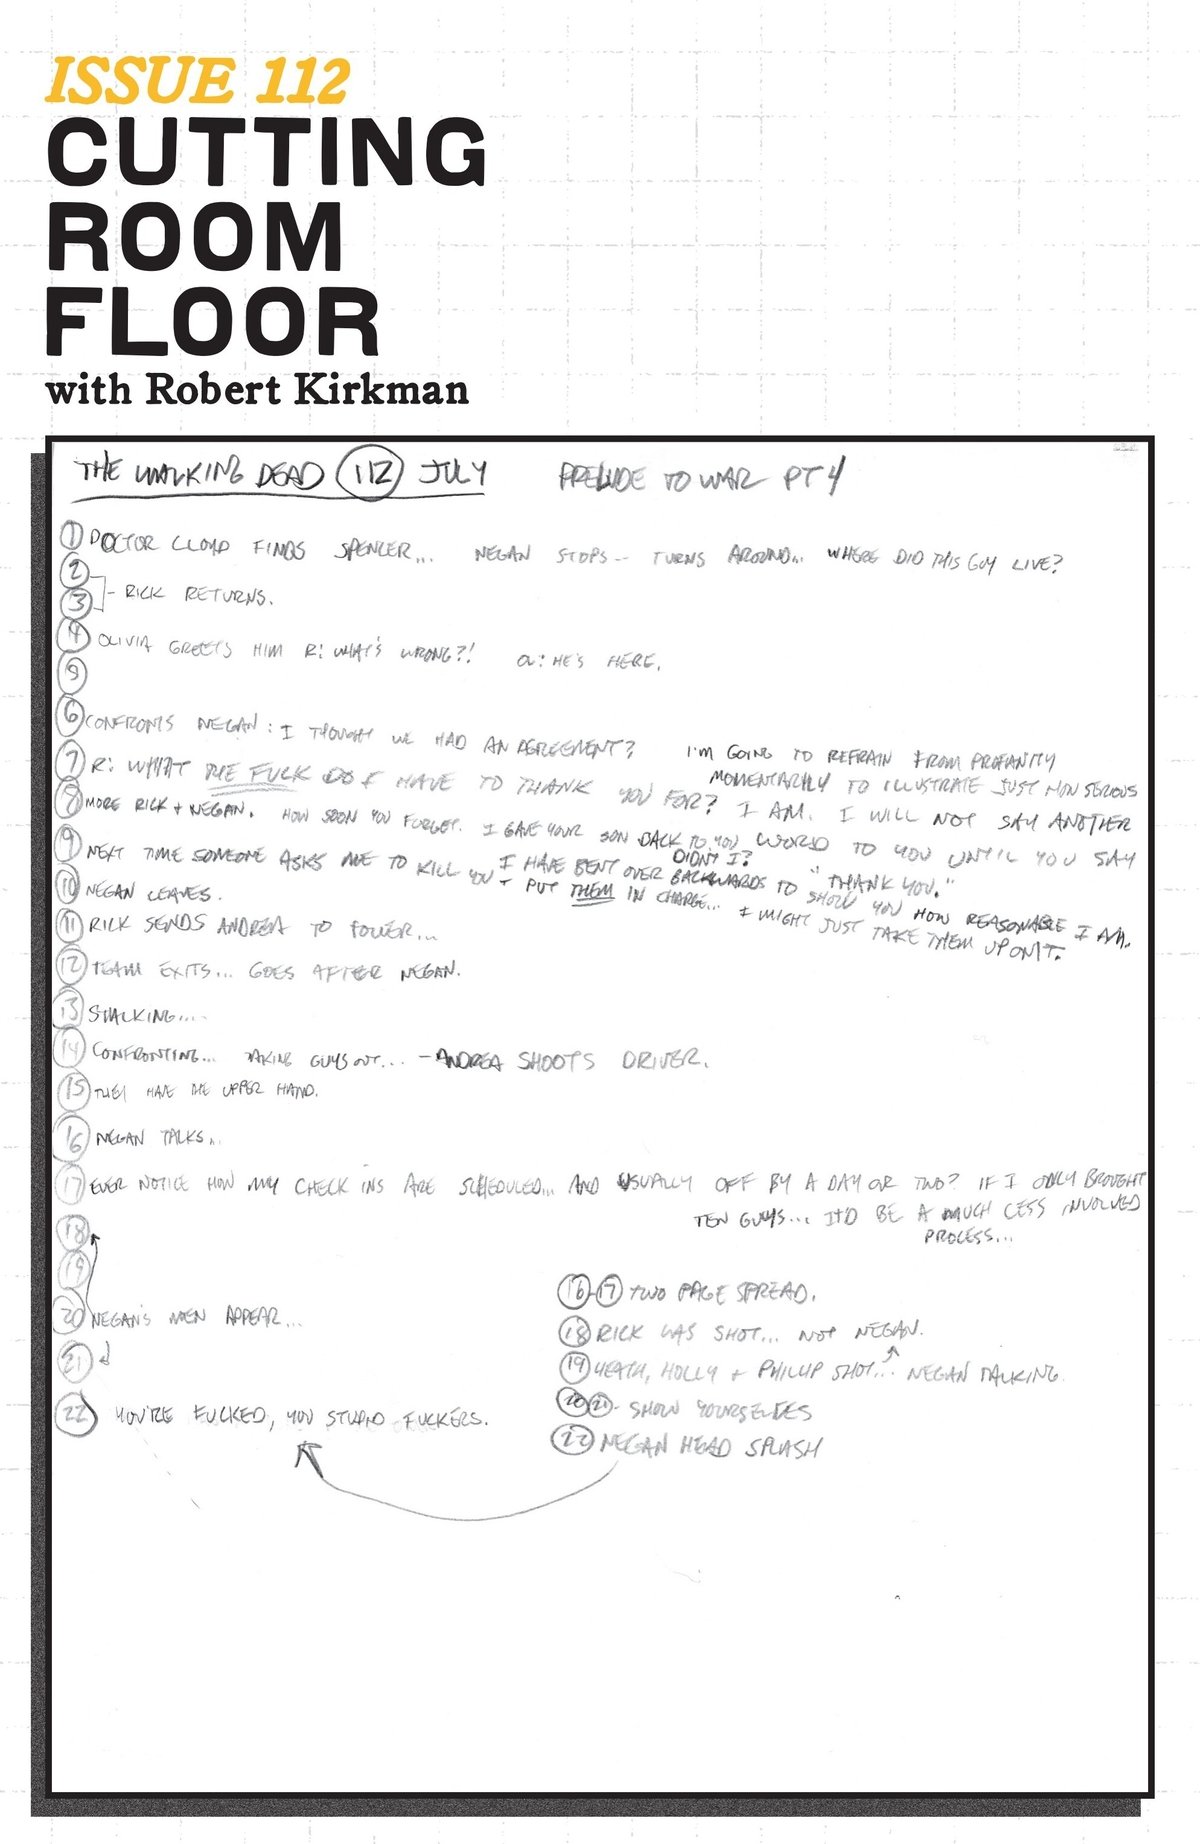 ISSUE 112
CUTTING
ROOM
FLOOR
with Robert Kirkman
THE WALKING DEAD 112 JULY PRELUDE TO WAR PT 4
1 DOCTOR CLOYD FINDS SPENCER... NEGAN STOPS -- TURNS AROUND... WHERE DID THIS GUY LIVE?
2
3 - RICK RETURNS.
4 OLIVIA GREETS HIM R: WHAT'S WRONG?! OL: HE'S HERE.
5
6 CONFRONTS NEGAN: I THOUGHT WE HAD AN AGREEMENT?
7 R: WHAT THE FUCK DO I HAVE TO THANK YOU FOR?
I'M GOING TO REFRAIN FROM PROFANITY
MOMENTARILY TO ILLUSTRATE JUST HOW SERIOUS
I AM. I WILL NOT SAY ANOTHER
WORD TO YOU UNTIL YOU SAY
"THANK YOU."
8 MORE RICK + NEGAN. HOW SOON YOU FORGET. I GAVE YOUR SON BACK TO YOU
DIDN'T I?
I HAVE BENT OVER BACKWARDS TO SHOW YOU HOW REASONABLE I AM.
9 NEXT TIME SOMEONE ASKS ME TO KILL YOU + PUT THEM IN CHARGE... I MIGHT JUST TAKE THEM UP ON IT.
10 NEGAN LEAVES.
11 RICK SENDS ANDREA TO TOWER...
12 TEAM EXITS... GOES AFTER NEGAN.
13 STALKING....
14 CONFRONTING... TAKING GUYS OUT... - ANDREA SHOOTS DRIVER.
15 THEY HAVE THE UPPER HAND.
16 NEGAN TALKS..
17 EVER NOTICE HOW MY CHECK INS ARE SCHEDULED... AND USUALLY OFF BY A DAY OR TWO? IF I ONLY BROUGHT
TEN GUYS... IT'D BE A MUCH LESS INVOLVED
PROCESS...
18
19
20 NEGAN'S MEN APPEAR...
21
22 YOU'RE FUCKED, YOU STUPID FUCKERS.
16-17 TWO PAGE SPREAD.
18 RICK WAS SHOT... NOT NEGAN.
19 HEATH, HOLLY + PHILLIP SHOT... NEGAN TALKING.
20 21 - SHOW YOURSELVES
22 NEGAN HEAD SPLASH